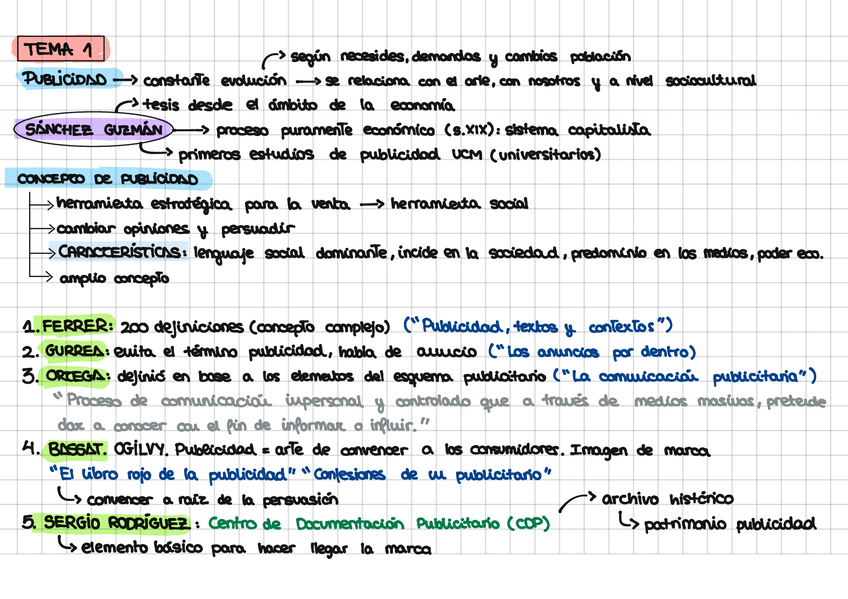 TEMA 1
según necesides, demandas y cambios población
PUBLICIDAD → constante evolución → se relaciona con el arte, con nosotros y a nivel sociocultural
tesis desde el ámbito de la economía
SÁNCHEZ GUZMÁN → proceso puramente económico (s.XIX): sistema capitalista
primeros estudios de publicidad UCM (universitarios)
CONCEPTO DE PUBLICIDAD
→ herramienta estratégica para la venta → herramienta social
→ cambiar opiniones y persuadir
→ CARACTERÍSTICAS: lenguaje social dominante, incide en la sociedad, predominio en los medios, poder eco.
→ amplio concepto
1. FERRER: 200 definiciones (concepto complejo) ("Publicidad, textos y contextos")
2. GURREA: evita el término publicidad, habla de anuncio ("Los anuncios por dentro)
3. ORTEGA: definió en base a los elementos del esquema publicitario ("La comunicación publicitaria")
"Proceso de comunicación impersonal y controlado que a través de medios masivos, pretende
dar a conocer con el fin de informar o influir."
4. BASSAT. OGILVY. Publicidad = arte de convencer a los consumidores. Imagen de marca
"El libro rojo de la publicidad" "Confesiones de un publicitario"
↳ convencer a raíz de la persuasión
→ archivo histórico
5. SERGIO RODRÍGUEZ: Centro de Documentación Publicitario (CDP)
↳ patrimonio publicidad
↳ elemento básico para hacer llegar la marca